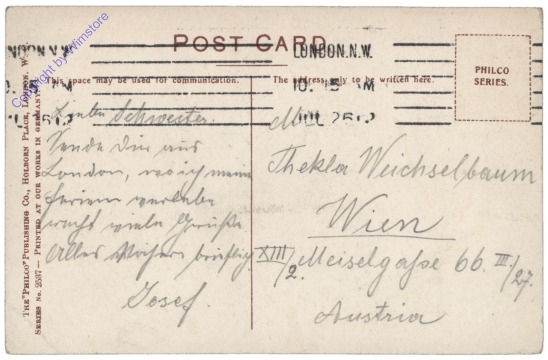 POST CARD
LONDON.N.W.
LONDON.N.W.
This space may be used for communication.
The address only to be written here.
PHILCO
SERIES.
10. 15 AM
JUL 26 12
Copyright by Wimstore
Liebe Schwester.
Sende Dir aus
London, wo ich meine
Ferien verlebe
recht viele Grüße.
Alles Nähere brieflich
Josef.
Thekla Weichselbaum
Wien
XIII/2. Meiselgaße 66. III./27.
Austria
THE "PHILCO" PUBLISHING CO., HOLBORN PLACE, LONDON, W.
SERIES No. 2537— PRINTED AT OUR WORKS IN GERMANY